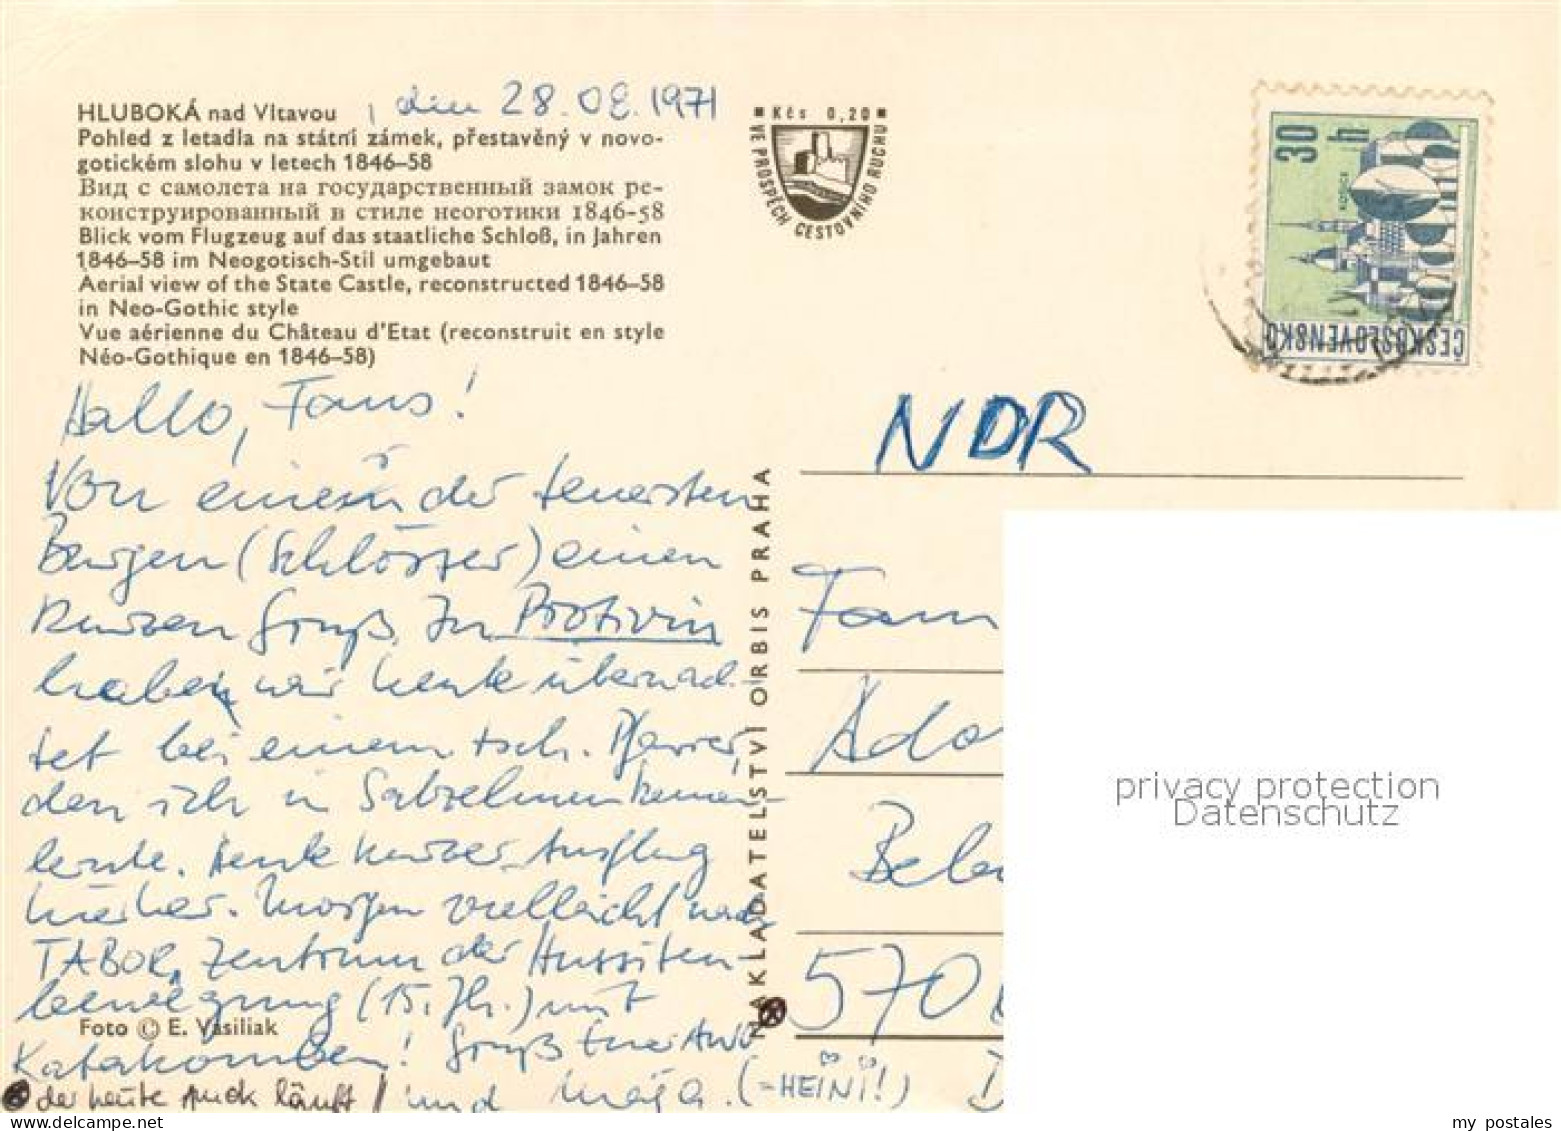 HLUBOKÁ nad Vltavou , den 28.08.1971
Pohled z letadla na státní zámek, přestavěný v novo-
gotickém slohu v letech 1846–58
Вид с самолета на государственный замок ре-
конструированный в стиле неоготики 1846-58
Blick vom Flugzeug auf das staatliche Schloß, in Jahren
1846–58 im Neogotisch-Stil umgebaut
Aerial view of the State Castle, reconstructed 1846–58
in Neo-Gothic style
Vue aérienne du Château d'Etat (reconstruit en style
Néo-Gothique en 1846–58)
Hallo, Fans!
Von einem der teuersten
Burgen (Schlösser) einen
kurzen Gruß. In Protivin
haben wir heute übernach-
tet bei einem tsch. Pfarrer,
den ich in kennen-
lernte. Heute kurzer Ausflug
hierher. Morgen vielleicht nach
TABOR, Zentrum der Hussiten-
bewegung (15. Jh.) mit
Katakomben! Gruß Euer
Foto © E. Vasiliak
der heute läuft und (=HEINI!)
Kčs 0,20
VE PROSPĚCH CESTOVNÍHO RUCHU
30 h
KOŠICE
ČESKOSLOVENSKO
NAKLADATELSTVÍ ORBIS PRAHA
NDR
Fam
Ado
Bele
570
D
privacy protection
Datenschutz
my postales